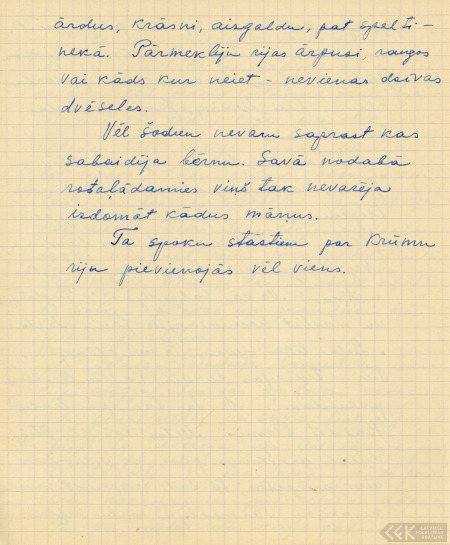 ārdus, krāsni, aizgaldu, pat špelti -
nekā. Pārmeklēju rijas ārpusi, raugos
vai kāds kur neiet - nevienas dzīvas
dvēseles.
Vēl šodien nevaru saprast kas
sabaidīja bērnu. Savā nodabā
rotaļādamies viņš tak nevarēja
izdomāt kādus māņus.
Tā spoku stāstiem par Krūmu
riju pievienojās vēl viens.